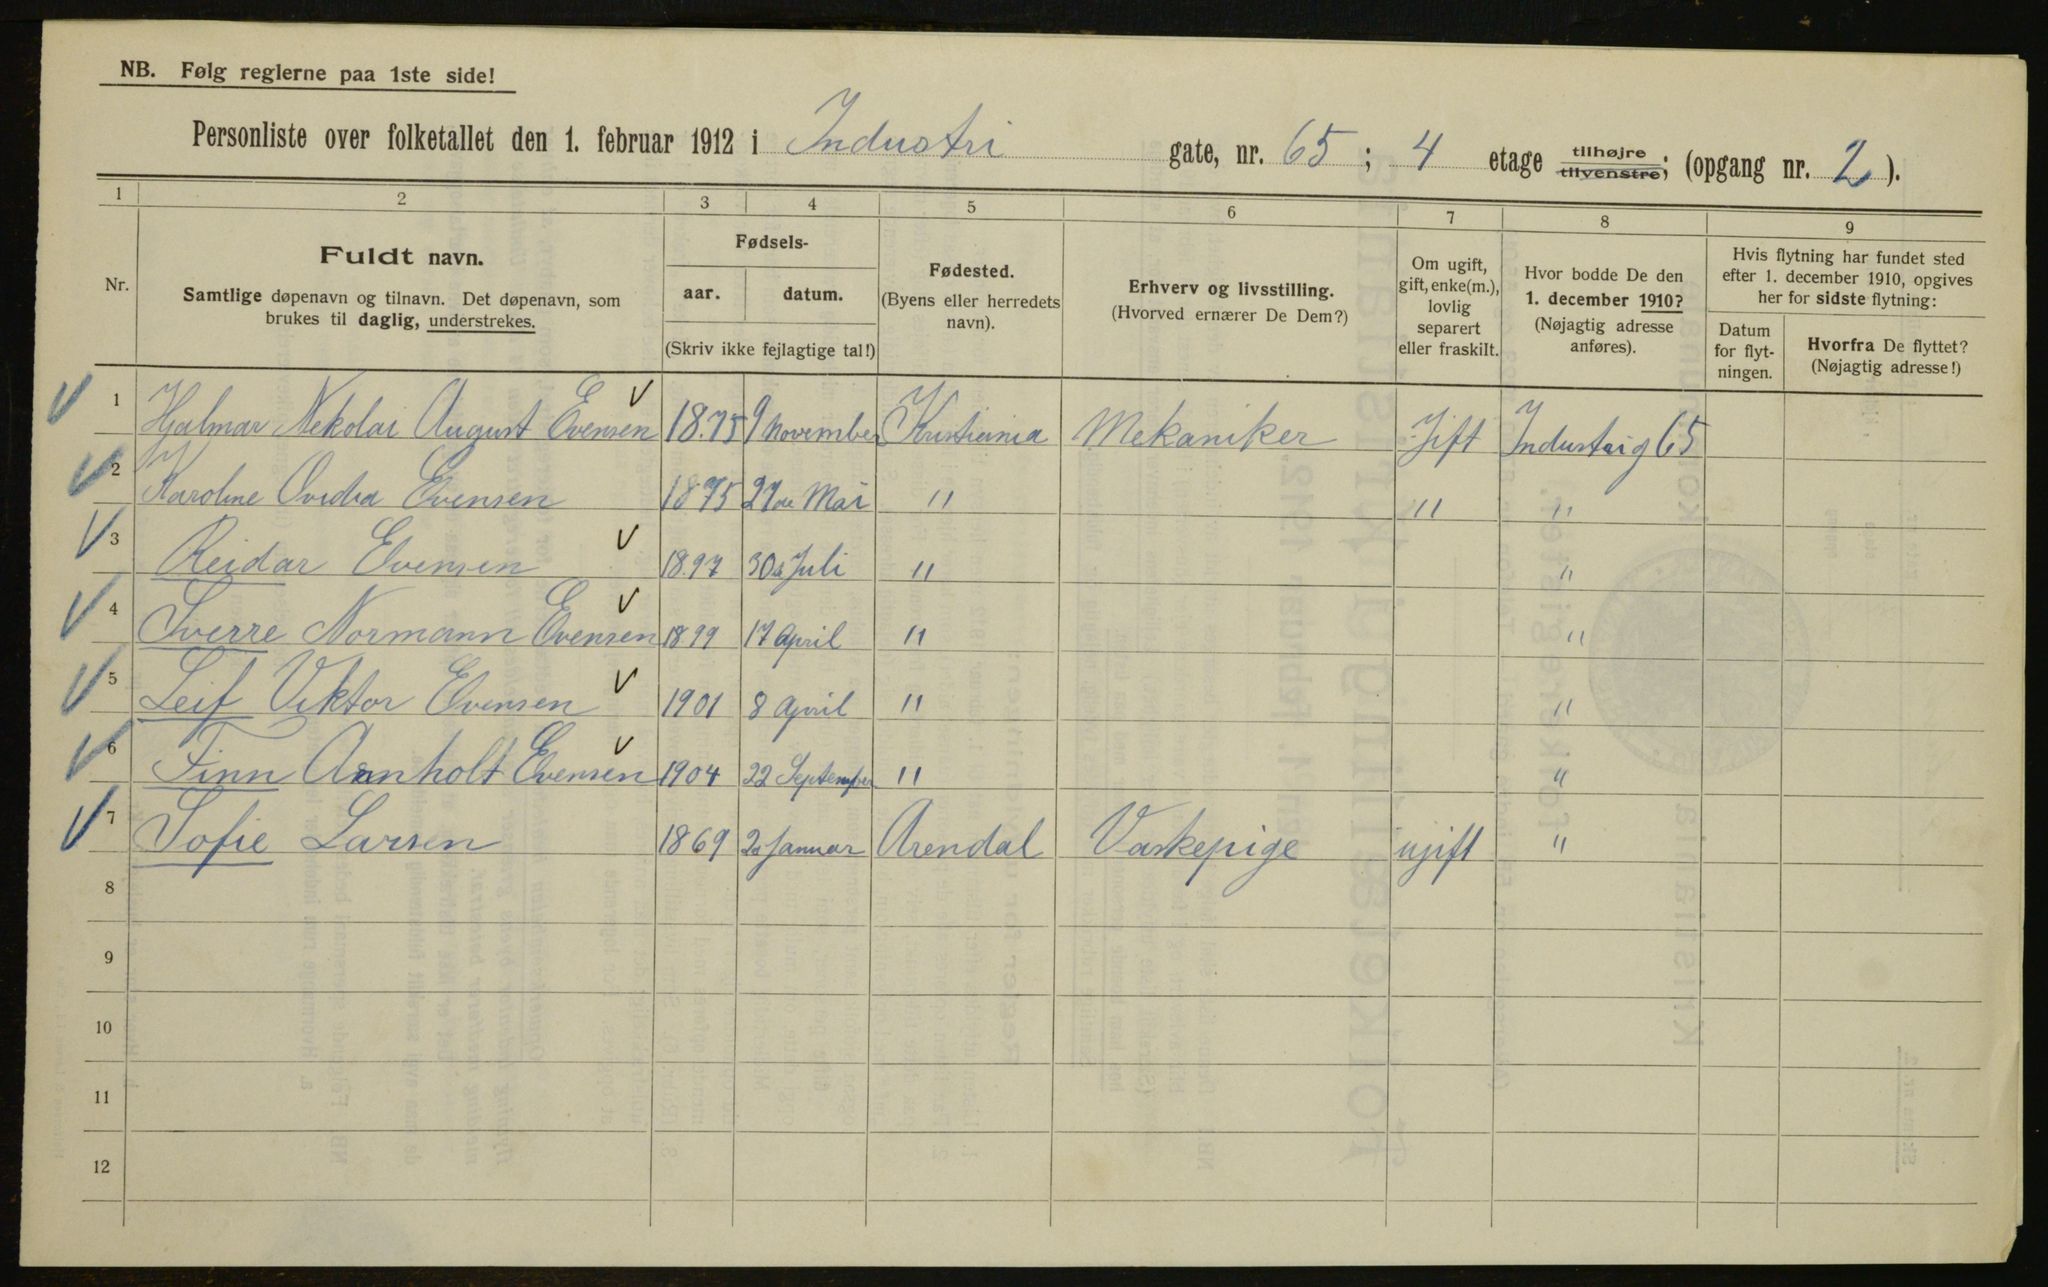 NB. Følg reglerne paa 1ste side!
Personliste over folketallet den 1. februar 1912 i Industri gate, nr. 65; 4 etage tilhøjre tilvenstre; (opgang nr. 2).
1 2 3 4 5 6 7 8 9
Nr.
Fuldt navn.
Samtlige døpenavn og tilnavn. Det døpenavn, som
brukes til daglig, understrekes.
Fødsels-
aar. datum.
(Skriv ikke fejlagtige tal!)
Fødested.
(Byens eller herredets
navn).
Erhverv og livsstilling.
(Hvorved ernærer De Dem?)
Om ugift,
gift, enke(m.),
lovlig
separert
eller fraskilt.
Hvor bodde De den
1. december 1910?
(Nøjagtig adresse
anføres).
Hvis flytning har fundet sted
efter 1. december 1910, opgives
her for sidste flytning:
Datum
for flyt-
ningen.
Hvorfra De flyttet?
(Nøjagtig adresse!)
1 Hjalmar Nekolai August Evensen 1875 9 November Kristiania Mekaniker Gift Industrig 65
2 Karoline Ovidia Evensen 1875 27de Mai " " "
3 Reidar Evensen 1897 30de Juli " "
4 Sverre Normann Evensen 1899 17 April " "
5 Leif Viktor Evensen 1901 8 April " "
6 Finn Arnholt Evensen 1904 22 September " "
7 Sofie Larsen 1869 2 Januar Arendal Vaskepige ugift "
8
9
10
11
12